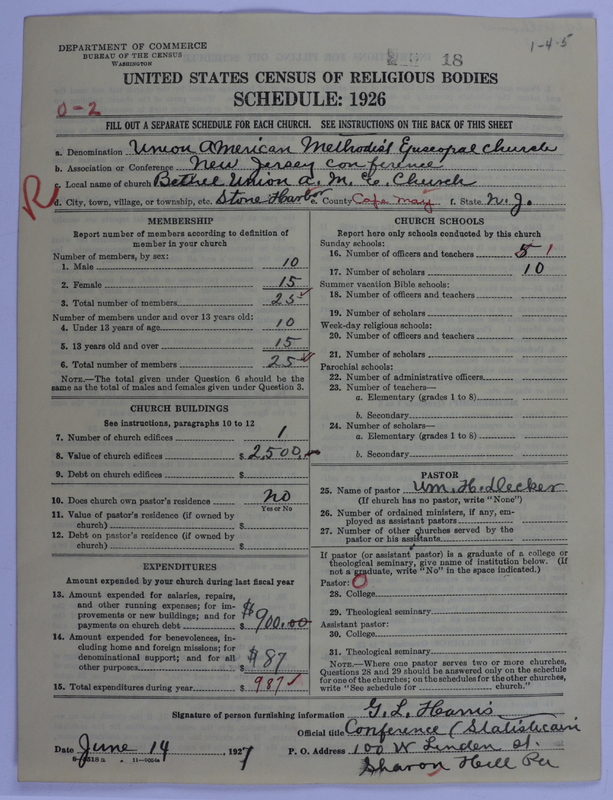 DEPARTMENT OF COMMERCE
BUREAU OF THE CENSUS
WASHINGTON
18
1-4-5
UNITED STATES CENSUS OF RELIGIOUS BODIES
SCHEDULE: 1926
0-2
FILL OUT A SEPARATE SCHEDULE FOR EACH CHURCH. SEE INSTRUCTIONS ON THE BACK OF THIS SHEET
a. Denomination Union American Methodist Episcopal church
b. Association or Conference New Jersey conference
c. Local name of church Bethel Union A. M. E. Church
R
d. City, town, village, or township, etc. Stone Harbor e. County Cape May f. State N. J.
MEMBERSHIP
Report number of members according to definition of
member in your church
Number of members, by sex:
1. Male 10
2. Female 15
3. Total number of members 25
Number of members under and over 13 years old:
4. Under 13 years of age 10
5. 13 years old and over 15
6. Total number of members 25
NOTE.—The total given under Question 6 should be
the same as the total of males and females given under Question 3.
CHURCH BUILDINGS
See instructions, paragraphs 10 to 12
7. Number of church edifices 1
8. Value of church edifices $ 2,500.
9. Debt on church edifices $
10. Does church own pastor's residence no
Yes or No
11. Value of pastor's residence (if owned by
church) $
12. Debt on pastor's residence (if owned by
church) $
EXPENDITURES
Amount expended by your church during last fiscal year
13. Amount expended for salaries, repairs,
and other running expenses; for im-
provements or new buildings; and for
payments on church debt $ 900.00
14. Amount expended for benevolences, in-
cluding home and foreign missions; for
denominational support; and for all
other purposes $ 87
15. Total expenditures during year $ 987
CHURCH SCHOOLS
Report here only schools conducted by this church
Sunday schools:
16. Number of officers and teachers 5 1
17. Number of scholars 10
Summer vacation Bible schools:
18. Number of officers and teachers
19. Number of scholars
Week-day religious schools:
20. Number of officers and teachers
21. Number of scholars
Parochial schools:
22. Number of administrative officers
23. Number of teachers—
a. Elementary (grades 1 to 8)
b. Secondary
24. Number of scholars—
a. Elementary (grades 1 to 8)
b. Secondary
PASTOR
25. Name of pastor Wm. H.
(If church has no pastor, write "None")
26. Number of ordained ministers, if any, em-
ployed as assistant pastors
27. Number of other churches served by the
pastor or his assistants
If pastor (or assistant pastor) is a graduate of a college or
theological seminary, give name of institution below. (If
not a graduate, write "No" in the space indicated.)
Pastor: O
28. College
29. Theological seminary
Assistant pastor:
30. College
31. Theological seminary
NOTE.—Where one pastor serves two or more churches,
Questions 28 and 29 should be answered only on the schedule
for one of the churches; on the schedules for the other churches,
write "See schedule for church."
Signature of person furnishing information G. L. Harris
Official title Conference Statistician
Date June 14, 1927 P. O. Address 100 W Linden St.
Sharon Hill Pa
11—